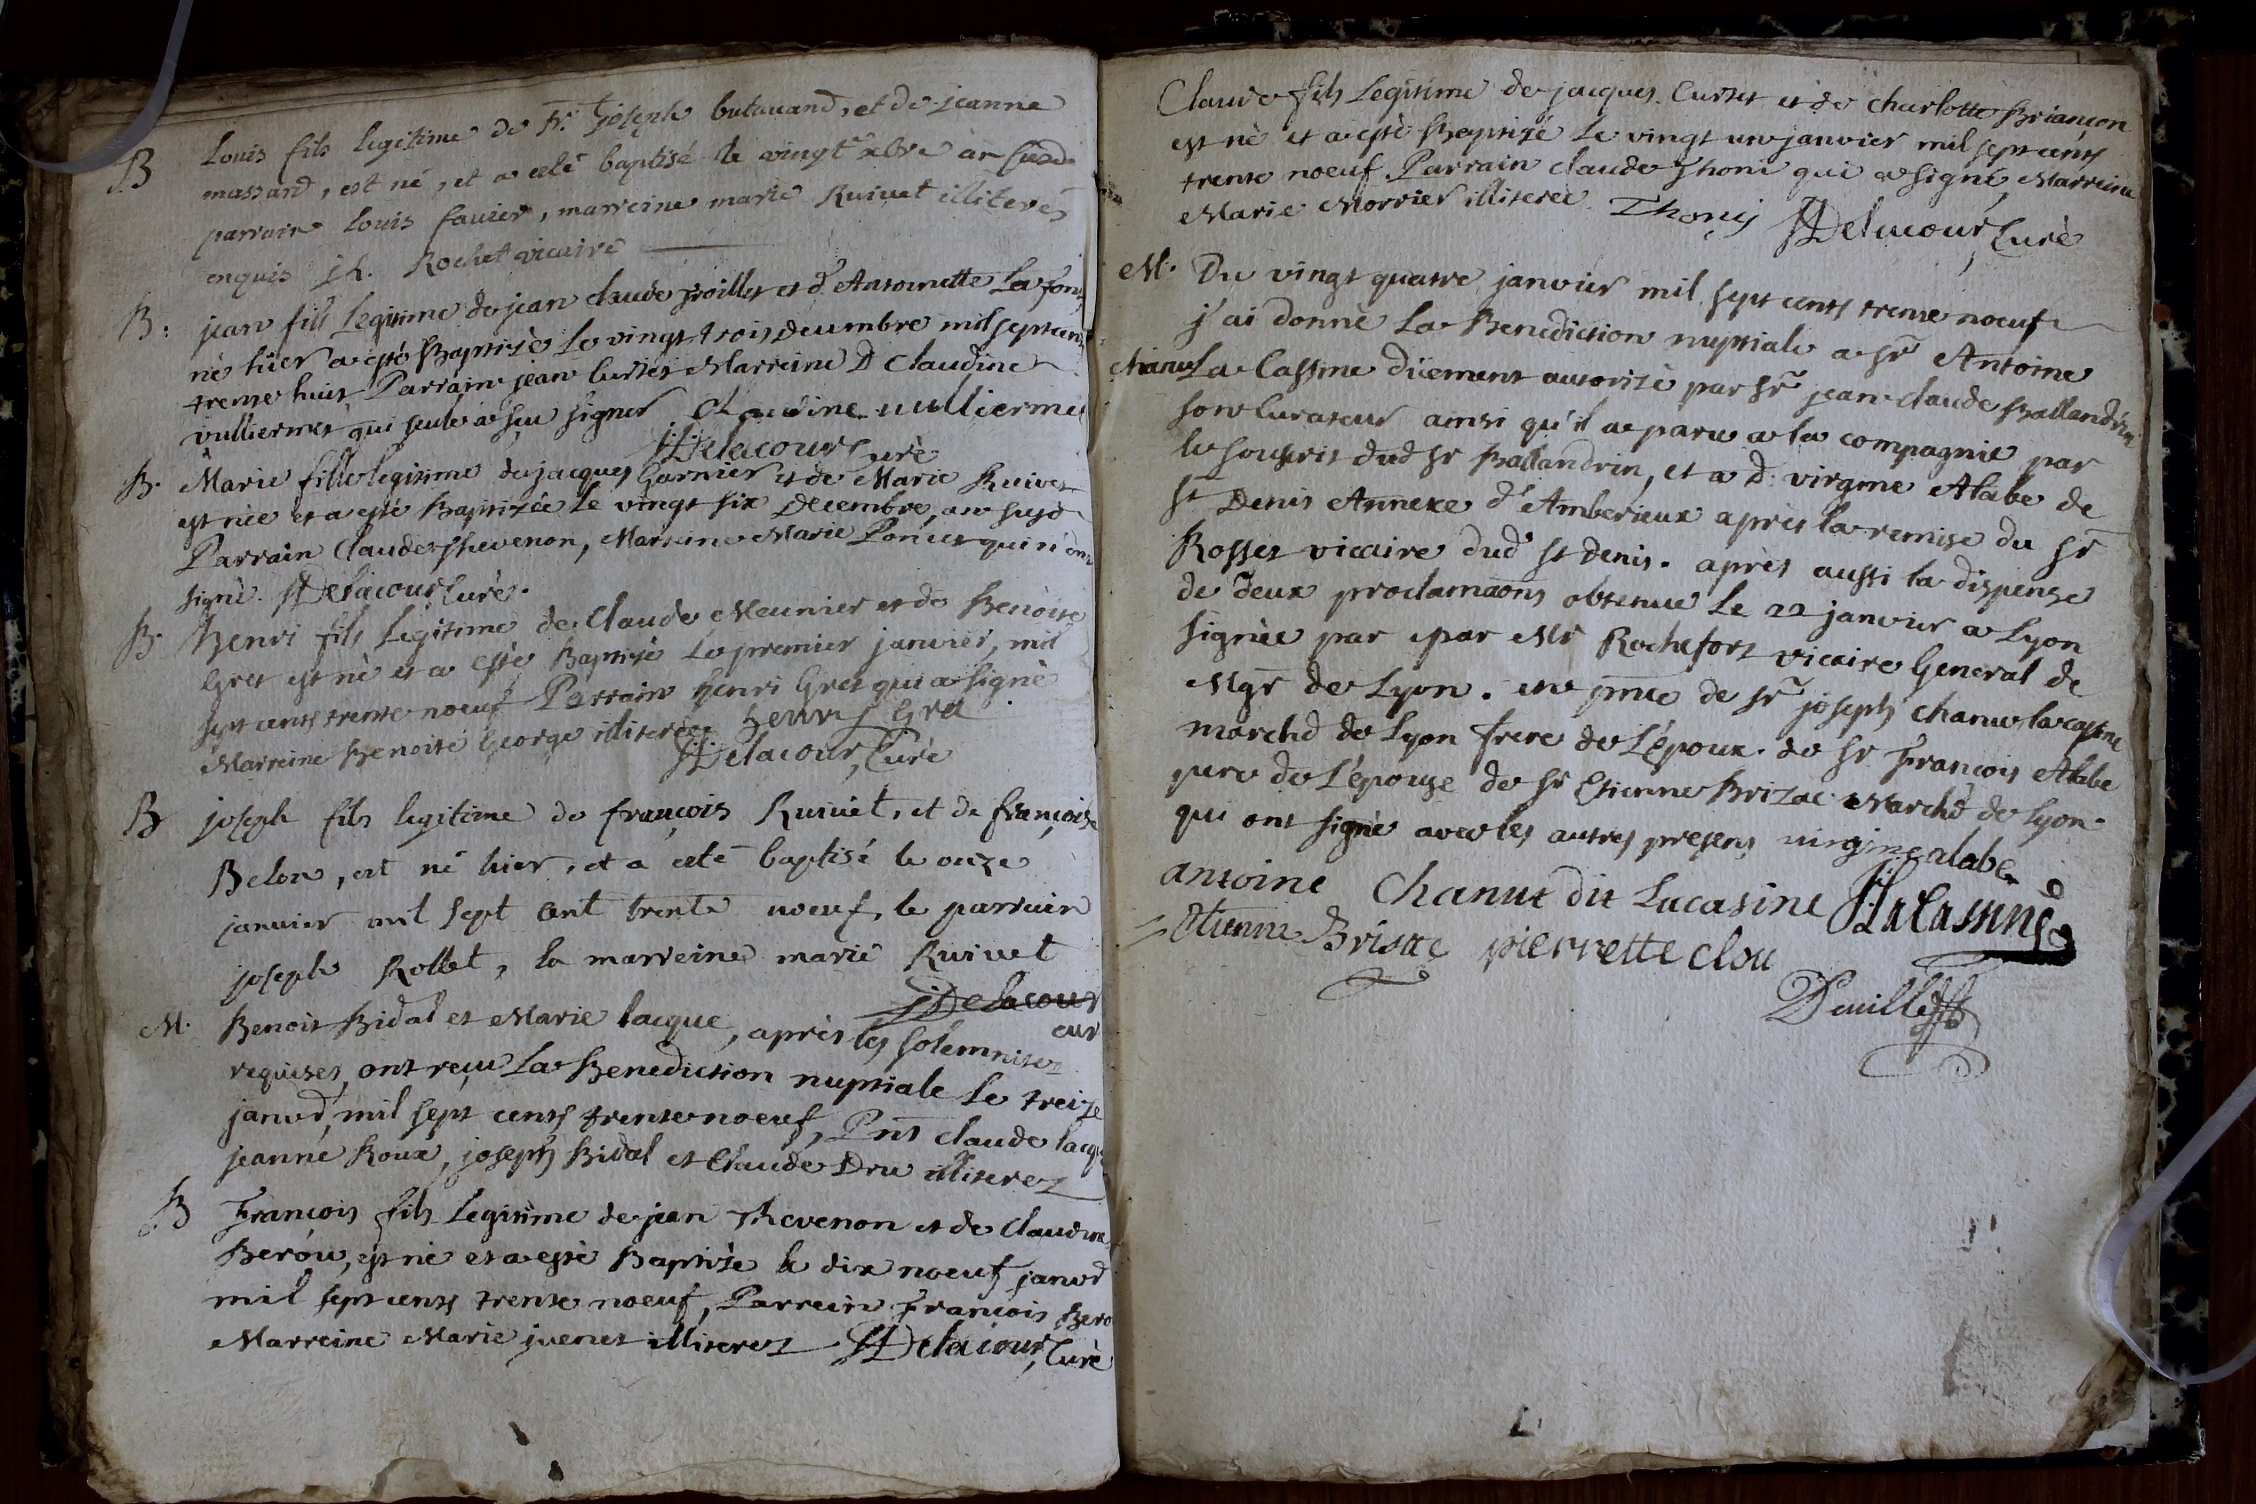 B Louis fils legitime de Sr. Joseph butavand, et de jeanne
massard, est né, et a eté baptisé le vingt xbre an susd
parrain Louis favier, marreine marie Ruivet illiterés
enquis jh. Rochet vicaire
B: jean fils Legitime de jean claude froillet et d'Antoinette La font
né hier a esté Baptisé le vingt-trois Decembre mil sept cents
trente huit Parrain jean Curtet Marreine D Claudine
vulliermet qui seule a sçu signer Claudine vulliermet
JDelacour Curé
B. Marie fille legitime de jacques Garnier et de Marie Ruivet
est née et a esté Baptisée le vingt six Decembre, an susd
Parrain Claude Thevenon, Marreine Marie Poncet qui n'ont
signé. JDelacour Curé.
B. Henri fils Legitime de Claude Meunier et de Benoite
Gret est né et a esté Baptisé Le premier janvier, mil
sept cents trente noeuf Parrain Henri Gret qui a signé
Marreine Benoite George illiterée Henry Gra
JDelacour, Curé
B joseph fils legitime de françois Ruivet, et de françoise
Belon, est né hier, et a eté baptisé le onze
janvier mil sept cent trente noeuf, le parrain
joseph Rollet, la marreine marie Ruivet
JDelacour
cur
M. Benoit Bidal et Marie lacque, après les solemnitez
requises, ont reçu La Benediction nuptiale le treize
janvd, mil sept cents trente noeuf, Pnts claude lacque
jeanne Roux, joseph Bidal et Claude Dru illiterez
B François fils Legitime de jean Thevenon et de Claudine
Berou, est né et a esté Baptisé le dix noeuf janvd
mil sept cents trente noeuf, Parrein François Bero
Marreine Marie juenet illiterez JDelacour, Curé
Claude fils Legitime de jacques Curtet et de Charlotte Briançon
est né et a esté Baptisé Le vingt un janvier mil sept cents
trente noeuf. Parrain claude Thoni qui a signé, Marreine
Marie Morrier illiterée. Thonij JDelacour, Curé
M. Du vingt quatre janvier mil sept cents trente noeuf
j'ai donné La Benediction nuptiale a Sr Antoine
chanu La Cassine düement autorizé par Sr jean claude Ballandrin
son Curateur ainsi qu'il a paru a la compagnie par
le souscrit dud Sr Ballandrin, et a D. virgine Alabe de
St Denis Annexe d'Amberieux après la remise du Sr
Rosset vicaire dud St Denis. après aussi la dispense
de deux proclamaõns obtenue le 22 janvier a Lyon
signée par par Mr Rochefort vicaire General de
Mgr de Lyon. en pnce de Sr joseph chanu la cassine
marchd de Lyon frere de L'époux. de Sr François Alabe
pere de L'épouse de Sr Etienne Brizac Marchd de Lyon.
qui ont signé avec les autres presens virgine alabe
antoine Chanut dit Lacasine JLalassine
Etienne Brisac pierrette clou